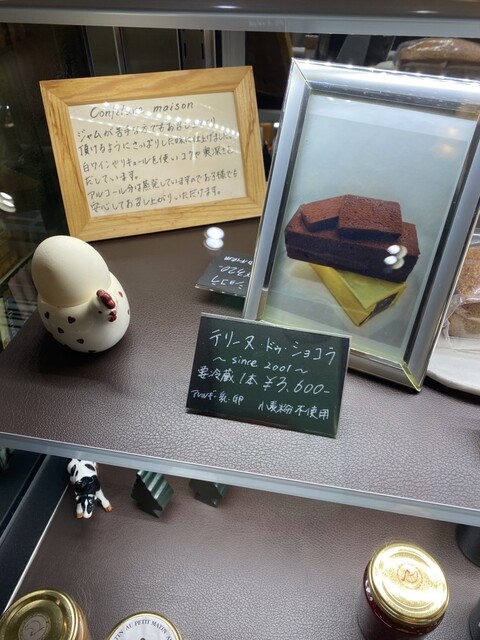 Confiture maison
ジャムが苦手な方でもお召し上がり
頂けるようにさっぱりした味に仕上げました。
白ワインやリキュールを使いコクや奥深さを
だしています。
アルコール分は蒸発していますのでお子様でも
安心してお召し上がりいただけます。
ショコラ
¥320
テリーヌ・ドゥ・ショコラ
～since 2001～
要冷蔵 1本 ¥3,600-
アレルギー 乳・卵 小麦粉不使用
AU PETIT MATIN